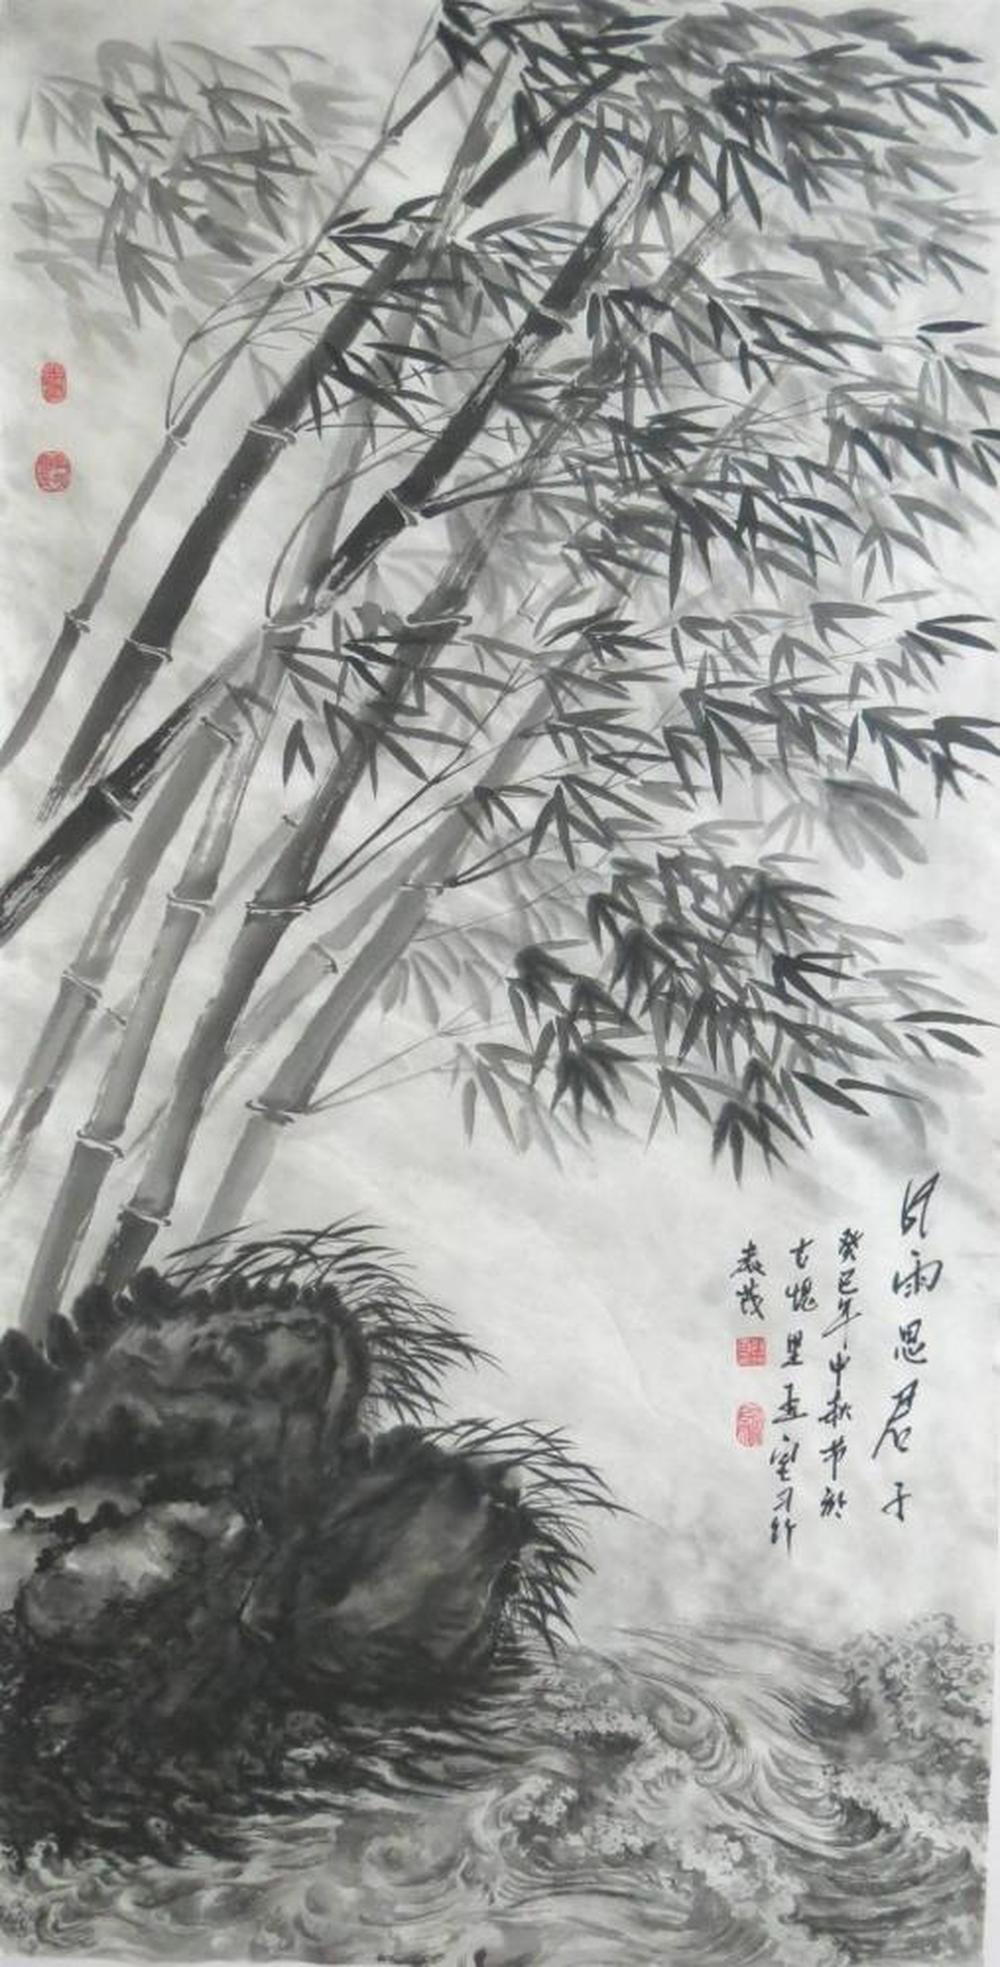 风雨思君子
癸巳年中秋节於
古槐里孟室习作
春茂